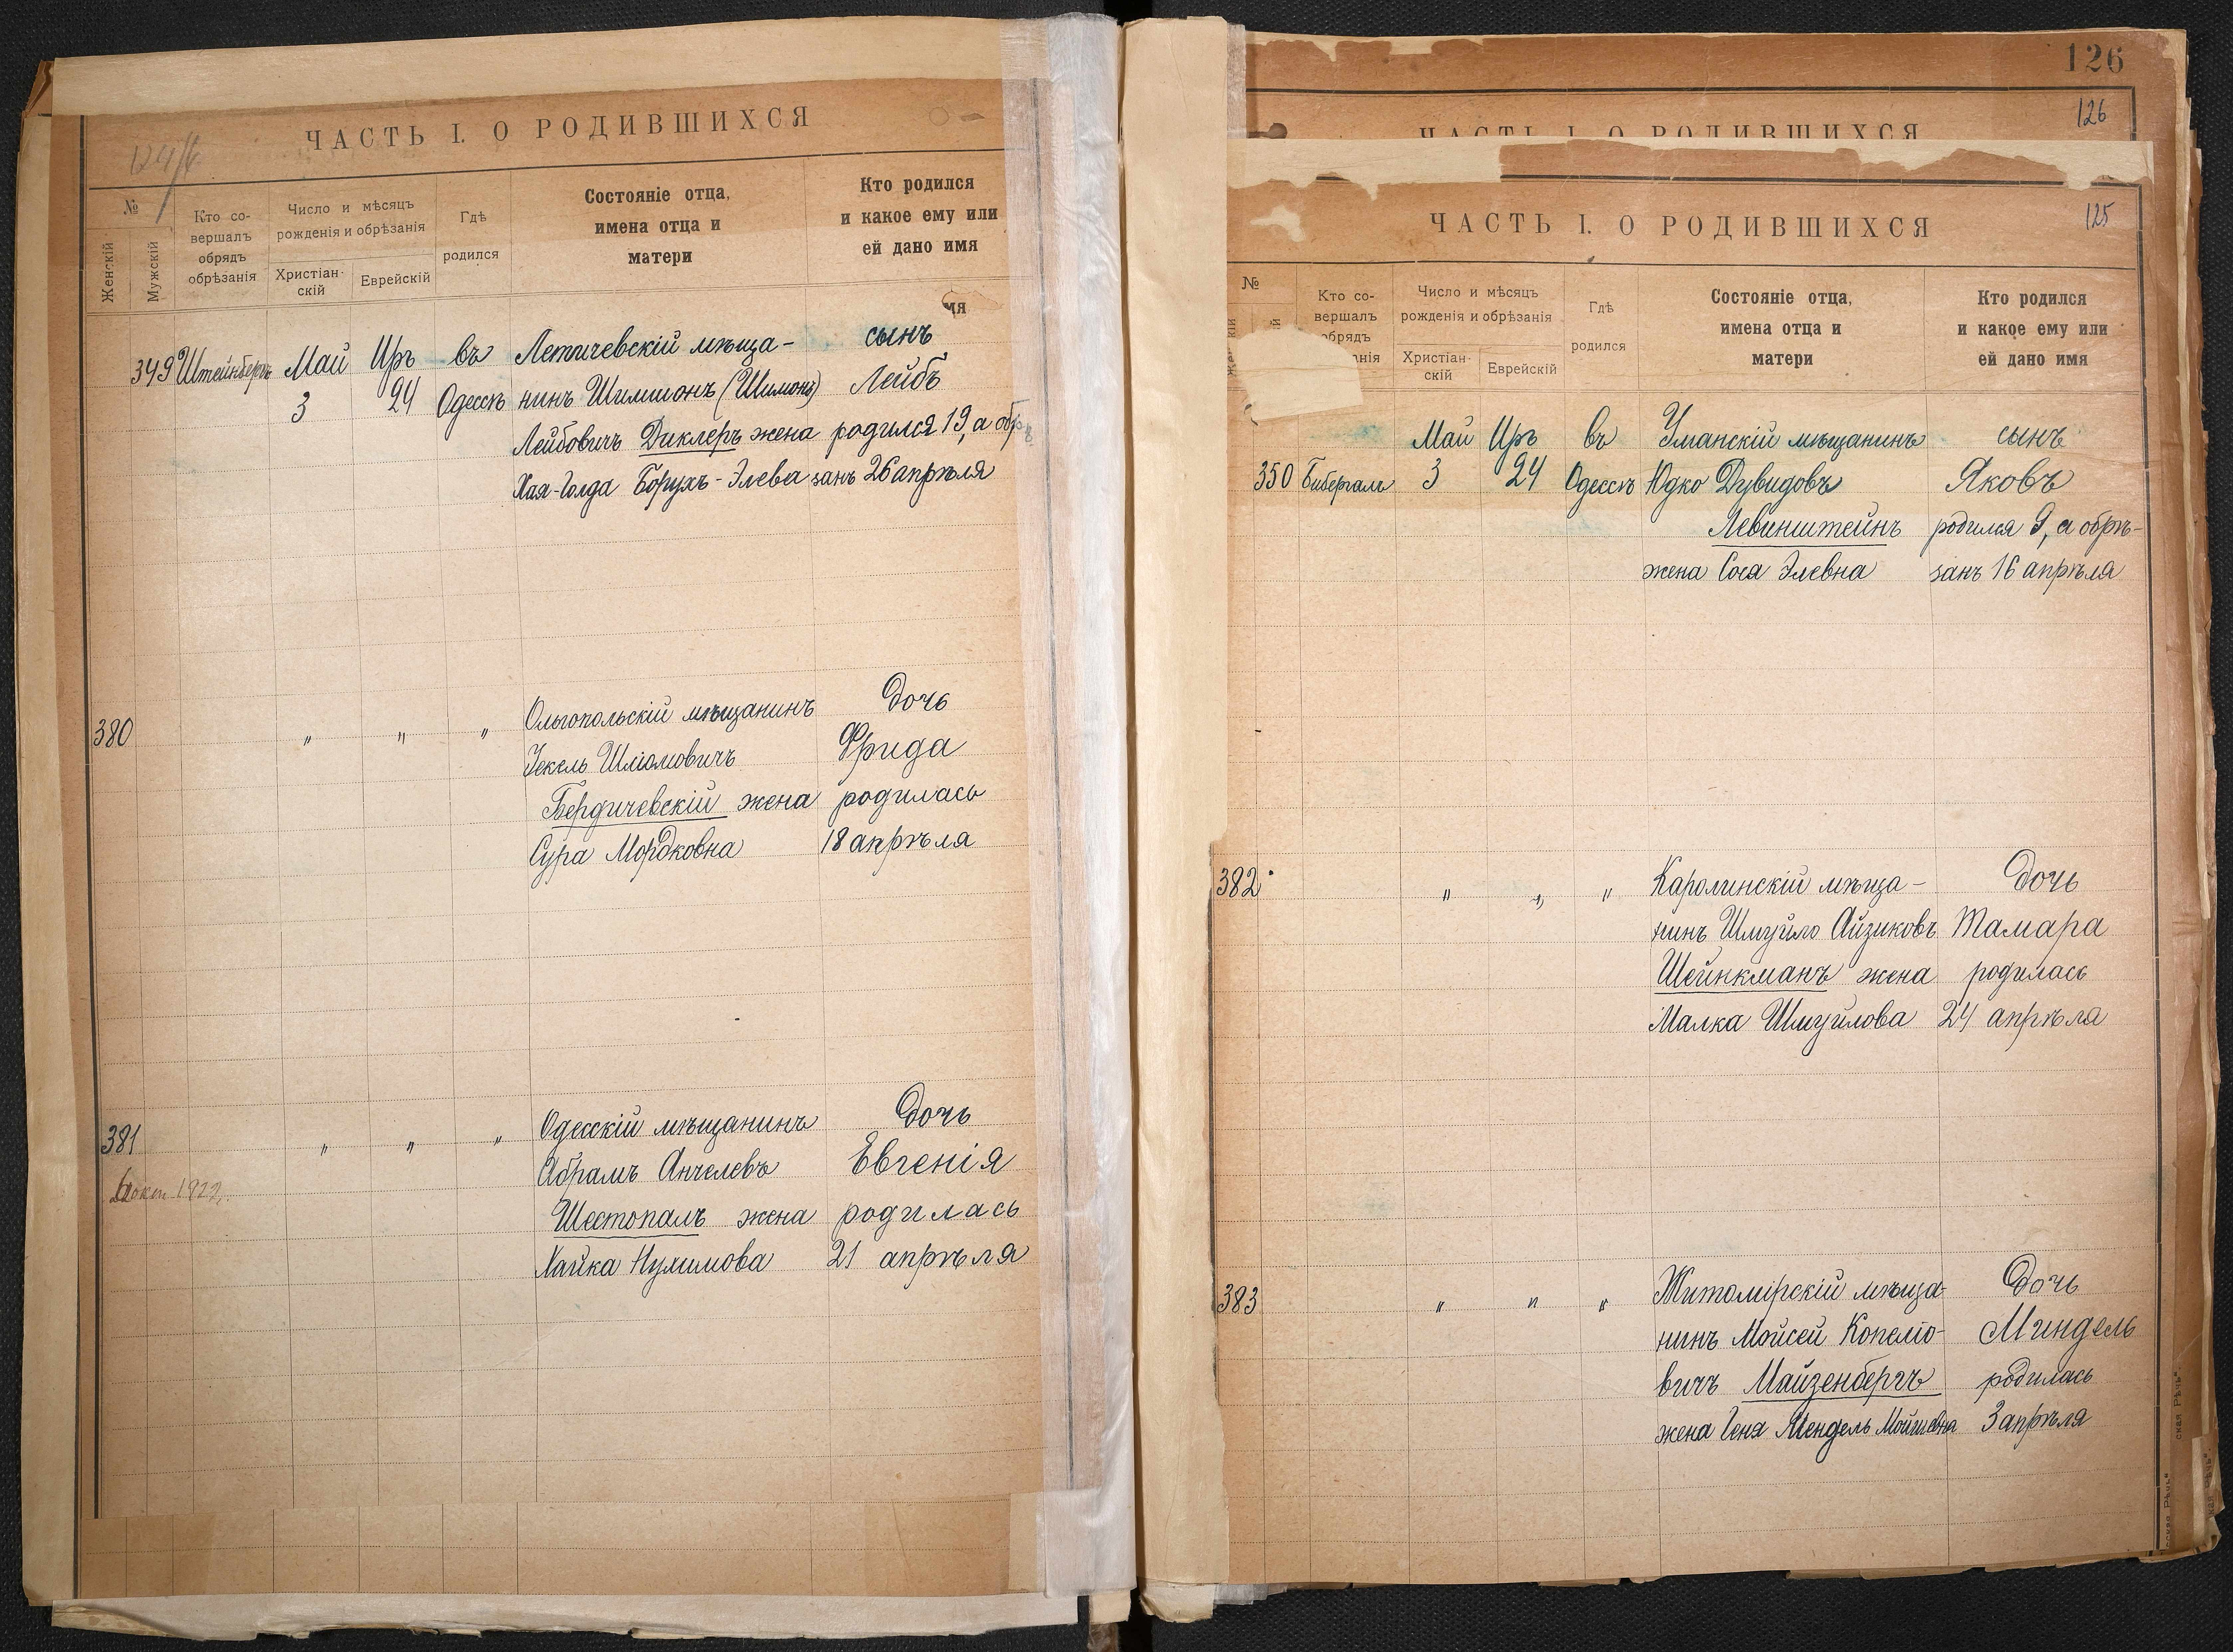 ЧАСТЬ I. О РОДИВШИХСЯ
№
Женскій
Мужскій
Кто со-
вершалъ
обрядъ
обрѣзанія
Число и мѣсяцъ
рожденія и обрѣзанія
Христіан-
скій
Еврейскій
Гдѣ
родился
Состояніе отца,
имена отца и
матери
Кто родился
и какое ему или
ей дано имя
мя
349 Штейнбергъ Май Иръ въ Летичевскій мѣща- сынъ
3 24 Одессѣ нинъ Шимшонъ (Шимонъ) Лейбъ
Лейбовичъ Диклеръ жена родился 19, а обр
Хая-Голда Борухъ-Элева занъ 26 апрѣля
380 " " " Ольгопольскій мѣщанинъ дочь
Іекель Шліомовичъ Фрида
Бердичевскій жена родилась
Сура Мордковна 18 апрѣля
381 " " " Одесскій мѣщанинъ дочь
Абрамъ Анчелевъ Евгенія
1922
Шестопалъ жена родилась
Хайка Нухимова 21 апрѣля
126
126
ЧАСТЬ I. О РОДИВШИХСЯ
125
ЧАСТЬ I. О РОДИВШИХСЯ
№
Кто со-
вершалъ
обрядъ
анія
Число и мѣсяцъ
рожденія и обрѣзанія
Христіан-
скій
Еврейскій
Гдѣ
родился
Состояніе отца,
имена отца и
матери
Кто родился
и какое ему или
ей дано имя
Май Иръ въ Уманскій мѣщанинъ сынъ
350 Бибергалъ 3 24 Одессѣ Юдко Дувидовъ Яковъ
Левинштейнъ родился 9, а обрѣ-
жена Сося Элевна занъ 16 апрѣля
382 " " " Каролинскій мѣща- дочь
нинъ Шмуйло Айзиковъ Тамара
Шейнкманъ жена родилась
Малка Шмуйлова 24 апрѣля
383 " " " Житомірскій мѣща- дочь
нинъ Мойсей Копелю- Миндель
вичъ Майзенбергъ родилась
жена Геня Мендель Мойшевна 3 апрѣля
ская Рѣчь"